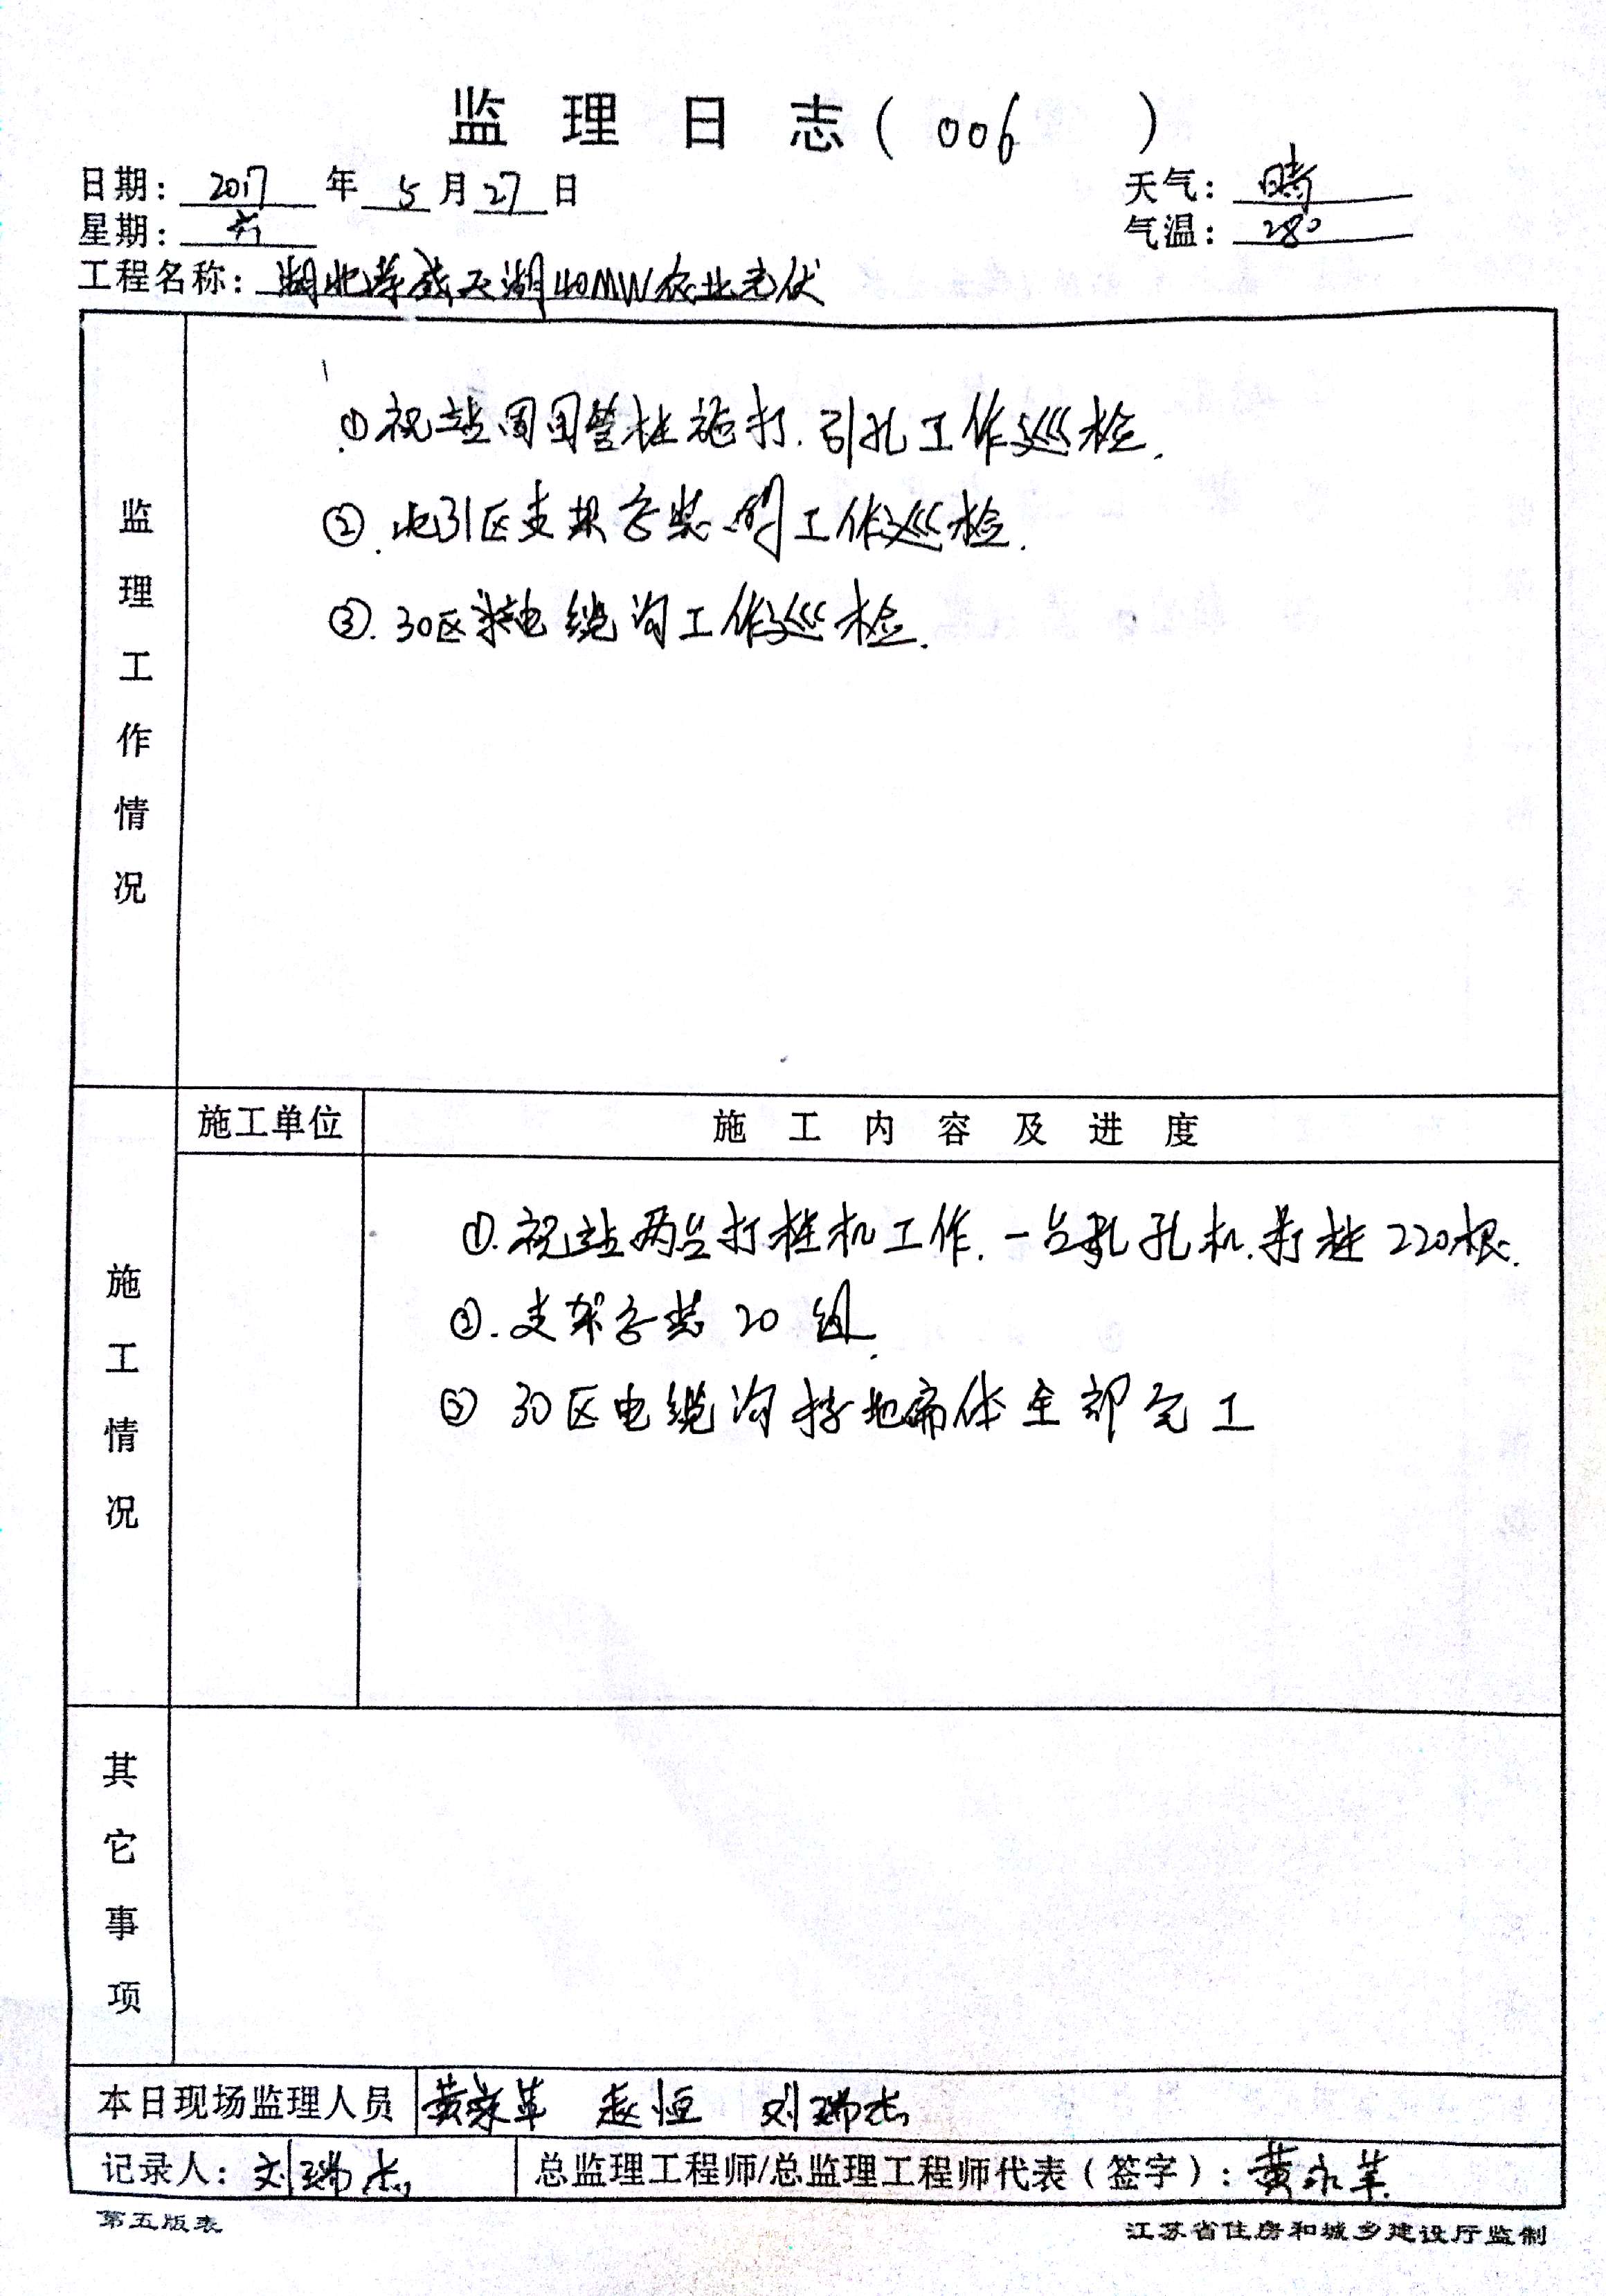 监理日志(006)
日期: 2017 年 5 月 27 日 天气: 晴
星期: 六 气温: 28°
工程名称: 湖北孝感天湖40MW农业光伏
监理工作情况
①祝站周围管桩施打.引孔工作巡检.
②.北31区支架安装的工作巡检.
③.30区电缆沟工作巡检.
施工情况
施工单位 施工内容及进度
①.祝站两台打桩机工作.一台引孔机.打桩220根.
②.支架安装20组.
③ 30区电缆沟接地扁体全部完工
其它事项
本日现场监理人员 黄永革 赵恒 刘瑞杰
记录人: 刘瑞杰 总监理工程师/总监理工程师代表(签字): 黄永革
第五版表 江苏省住房和城乡建设厅监制